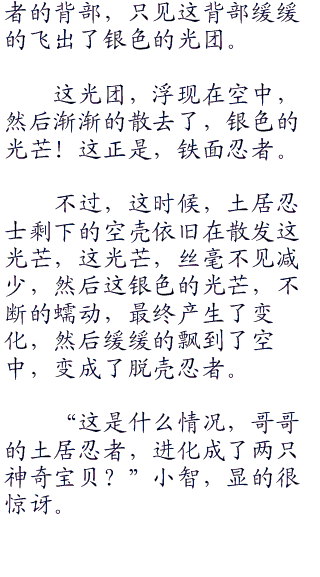 者的背部，只见这背部缓缓
的飞出了银色的光团。
这光团，浮现在空中，
然后渐渐的散去了，银色的
光芒！这正是，铁面忍者。
不过，这时候，土居忍
士剩下的空壳依旧在散发这
光芒，这光芒，丝毫不见减
少，然后这银色的光芒，不
断的蠕动，最终产生了变
化，然后缓缓的飘到了空
中，变成了脱壳忍者。
“这是什么情况，哥哥
的土居忍者，进化成了两只
神奇宝贝？”小智，显的很
惊讶。